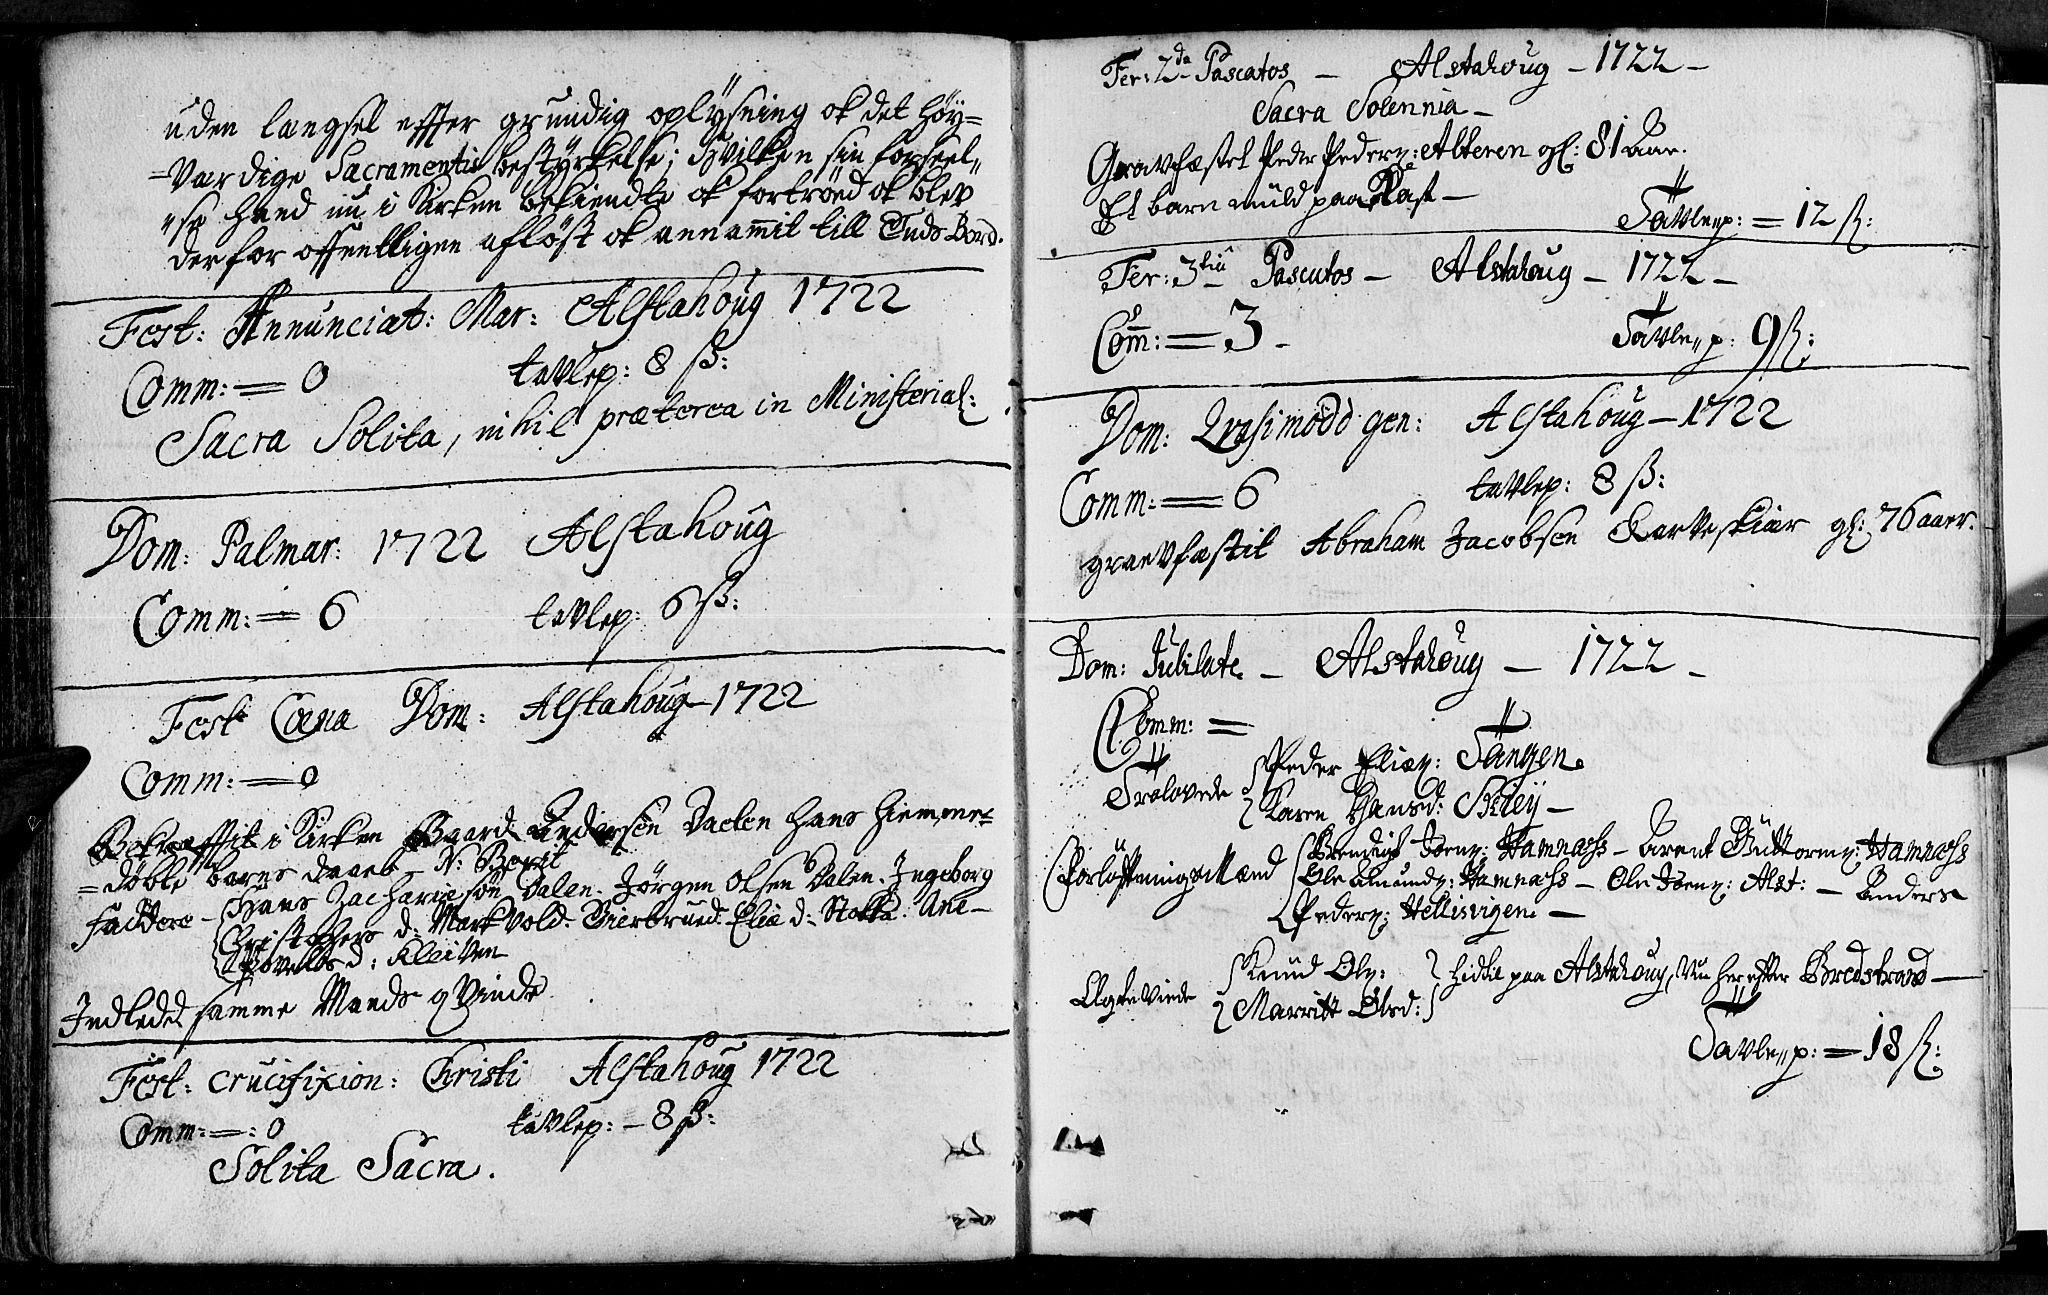 uden længsel effter grundig oplÿsning ok det höÿ=
=Værdige Sacramentis bestÿrkelse; Hvilken sin forseel„
„se hand nu i Kirken bekiendte ok fortröed ok blev
derfor offentligen aflöst ok annammit till Guds Bord.
Fest: Annunciat: Mar: Alstahoug 1722
Comm: = 0 tavlep: 8 ß:
Sacra Solita, nihil præterea in Ministerial:
Dom: Palmar: 1722 Alstahoug
Comm: = 6 tavlep: 6 ß:
Fest Coena Dom: Alstahoug - 1722
Comm: = 0
Bekræfftit i Kirken Baard Andersen Daelen hans hiemme=
=döbte barns daab - N: Berit
Faddere - Hans Zachariesön Dalen. Jörgen Olsen Dalen. Ingeborg
Christophers d: Markvold. Giertrued Elie d: Stokka. Ane -
Povels d: Kleiven
Indledd samme Mands qvinde
Fest: crucifixion: Christi Alstahoug 1722
Comm: = : 0 tavlep: - 8 ß:
Solita Sacra.
Fer: 2da Pascatos - Alstahoug - 1722 -
Sacra Solennia -
Gravfæstet Peder Pedern: Alteren gl: 81 Aar.
Et barn muld paa Kast -
Tavle„p: = 12 ß:
Fer: 3tiu Pascatos - Alstahoug - 1722 -
Comm: = 3 - Tavle„p: 9 ß:
Dom: Qvasimodo gen: Alstahoug - 1722
Comm: = 6 tavlep: 8 ß:
graevfæstit Abraham Jacobsen Karveskiær gl: 76 aaer.
Dom: Jubilate - Alstahoug - 1722 -
Comm: =
Trolovede Peder Elien: Tangen.
Karen Hansd: Skieÿ -
Forlöftningsmænd Joenn: Hamnæss - Arent Guttormn: Hamnæss
Ole Amundn: Hamnæss - Ole Joenn: Alst: - Anders
Pedern: Hellisvigen -
Ægte Viede Knud Oln: hidtil paa Alstahoug, nu herefter Bredstrand -
Marritt Olsd:
Tavle„p: = 18 ß: